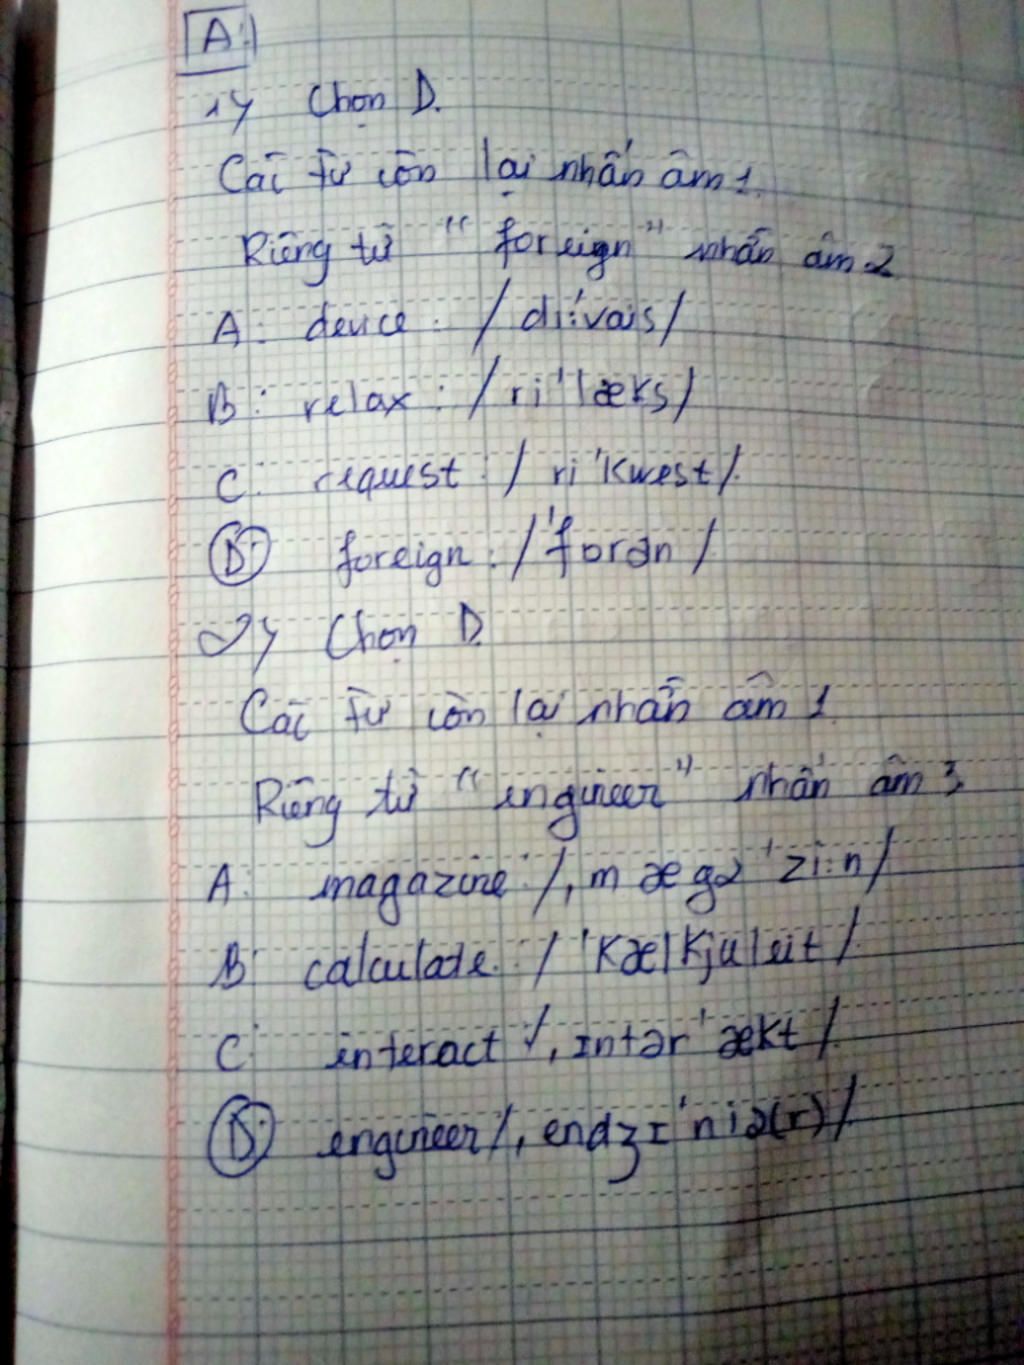 A:
1, Chọn D.
Các từ còn lại nhấn âm 1.
Riêng từ "foreign" nhấn âm 2
A: device: /di:'vais/
B: relax: /ri'læks/
C: request: /ri'kwest/.
D: foreign: /'forən/
2, Chọn D.
Các từ còn lại nhấn âm 1.
Riêng từ "engineer" nhấn âm 3
A: magazine: /,mægə'zi:n/
B: calculate: /'kælkjuleit/.
C: interact /,ɪntər'ækt/.
D: engineer /,endʒɪ'niə(r)/.